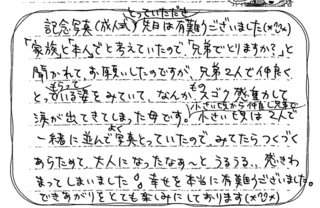 とっていただき
記念写真(成人式)先日は有難うございました(×^^×)
「家族と本人で」と考えていたので、「兄弟でとりますか?」と
聞かれて、お願いしたのですが、兄弟2人で仲良く
もらって
とっている姿をみていて、なんか、スゴク感動して
もう
涙が出てきてしまった母です。小さい兄は2人で
小さい兄から仲良し兄弟で
よく
一緒に並んで写真とっていたので、みてたらつくづく
あらためて、大人になったなぁ〜とうるうる、、感きわ
まってしまいました。幸せを本当に有難うございました。
できあがりをとても楽しみにしております(×^^×)